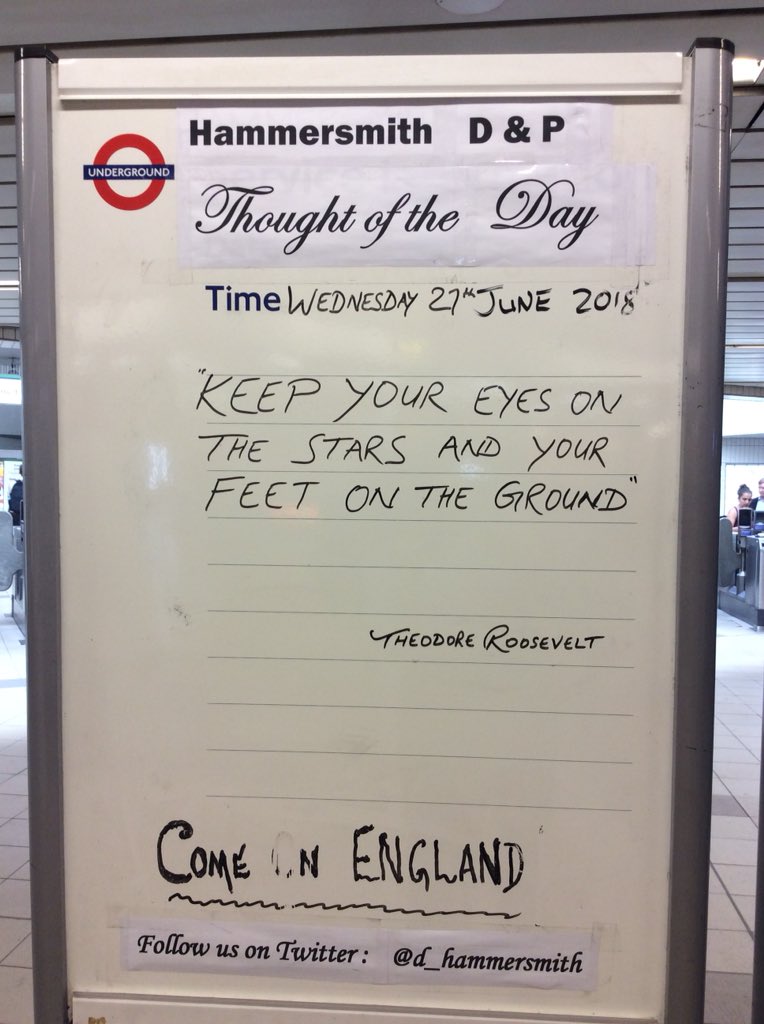 Hammersmith D & P
UNDERGROUND
Thought of the Day
Time WEDNESDAY 27th JUNE 2018
"KEEP YOUR EYES ON
THE STARS AND YOUR
FEET ON THE GROUND"
THEODORE ROOSEVELT
COME ON ENGLAND
Follow us on Twitter : @d_hammersmith